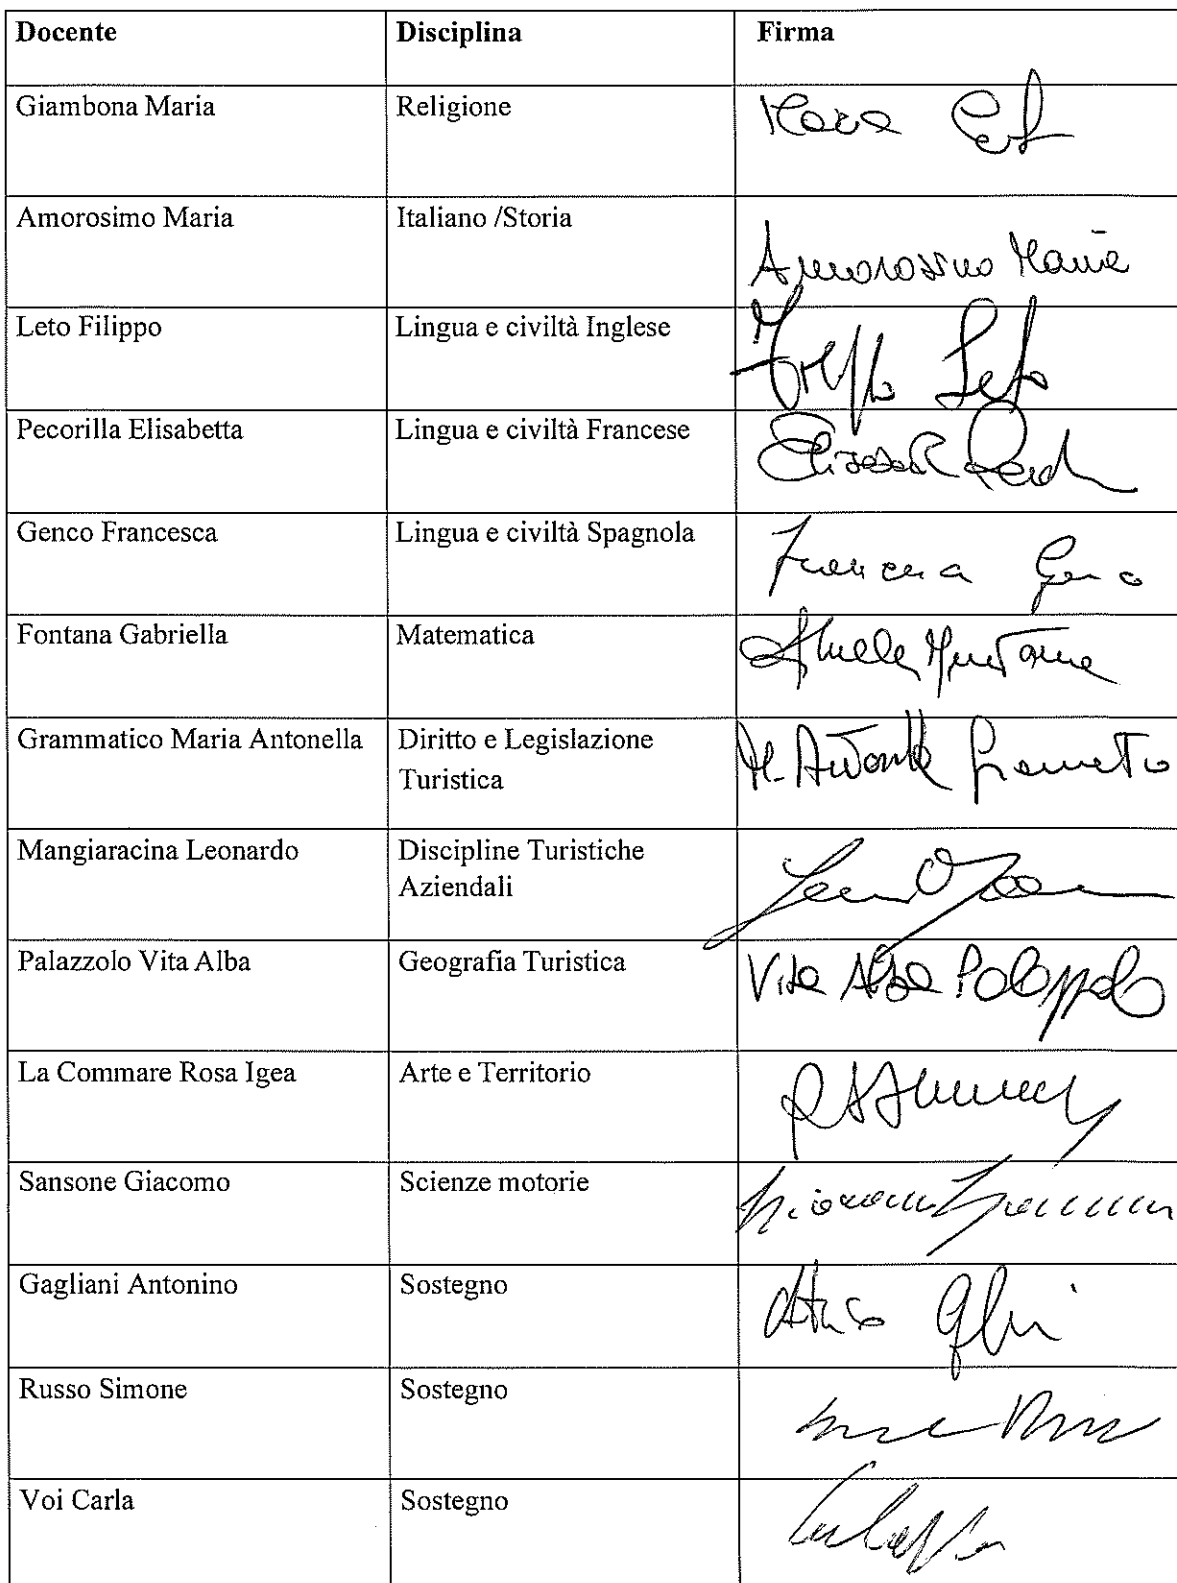 Docente Disciplina Firma
Giambona Maria Religione
Amorosimo Maria Italiano /Storia
Amorosino Maria
Leto Filippo Lingua e civiltà Inglese
Leto
Pecorilla Elisabetta Lingua e civiltà Francese
Genco Francesca Lingua e civiltà Spagnola
Francesca
Fontana Gabriella Matematica
Grammatico Maria Antonella Diritto e Legislazione
Turistica
Mangiaracina Leonardo Discipline Turistiche
Aziendali
Palazzolo Vita Alba Geografia Turistica Vita Alba Palazzolo
La Commare Rosa Igea Arte e Territorio
Sansone Giacomo Scienze motorie
Gagliani Antonino Sostegno
Russo Simone Sostegno
Voi Carla Sostegno